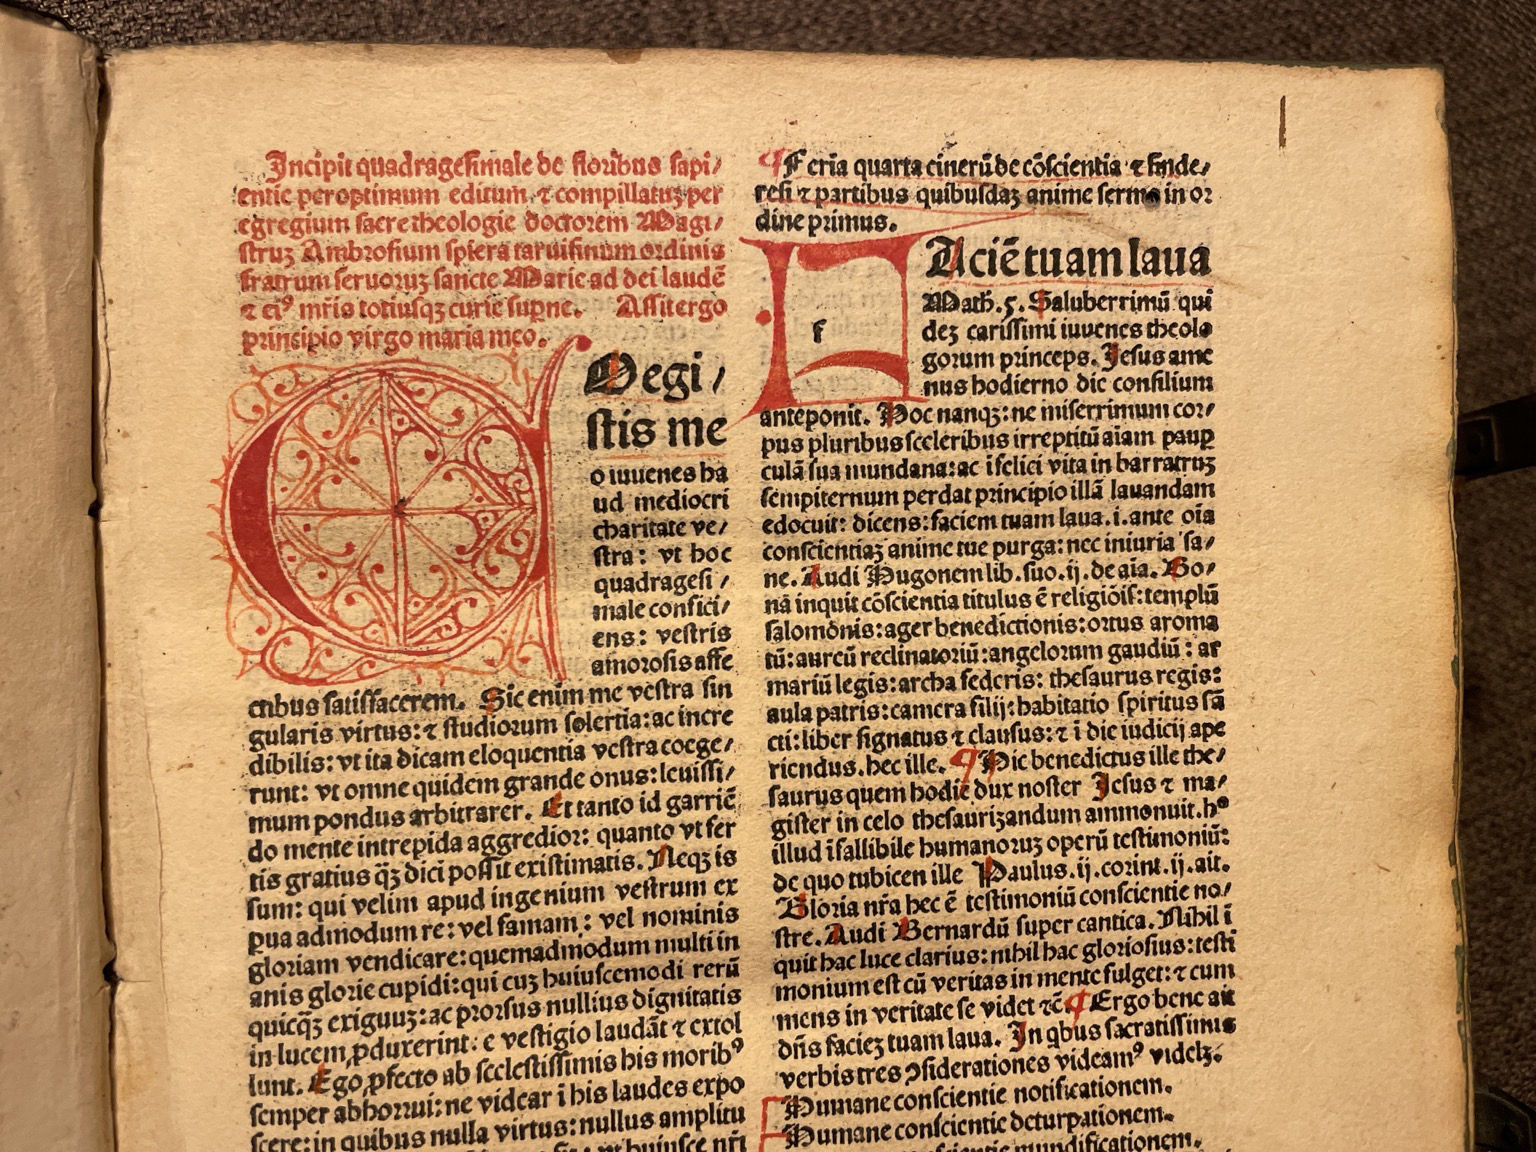 Incipit quadragesimale de floribus sapi/
entie peroptimum editum ⁊ compillatuꝫ per
egregium sacre theologie doctorem Magi/
struꝫ Ambrosium spiera taruisinum ordinis
fratrum seruoruꝫ sancte Marie ad dei laudē
⁊ ciꝰ mr̄is totiusqꝫ curie supne. Assit ergo
principio virgo maria meo.
COegi/
stis me
o iuuenes ha
ud mediocri
charitate ve/
stra: vt hoc
quadragesi/
male confici/
ens: vestris
amorosis affe
ctibus satisfacerem. Sic enim me vestra sin
gularis virtus: ⁊ studiorum solertia: ac incre
dibilis: vt ita dicam eloquentia vestra coege/
runt: vt omne quidem grande onus: leuissi/
mum pondus arbitrarer. Et tanto id garriē
do mente intrepida aggredior: quanto vt fer
tis gratius qꝫ̄ dici possit existimatis. Neqꝫ is
sum: qui velim apud ingenium vestrum ex
pua admodum re: vel famam: vel nominis
gloriam vendicare: quemadmodum multi in
anis glorie cupidi: qui cuꝫ huiuscemodi rerū
quicqꝫ̄ exiguuꝫ: ac prorsus nullius dignitatis
in lucem ꝓduxerint: e vestigio laudāt ⁊ extol
lunt. Ego ꝓfecto ab scelestissimis his moribꝰ
semper abhorrui: ne videar ī his laudes expo
scere: in quibus nulla virtus: nullus amplitu
vt huiusce nr̄i
¶ Feria quarta cinerū de cōscientia ⁊ sinde/
resi ⁊ partibus quibusdaꝫ anime sermo in or
dine primus.
FAciē tuam laua
Math. 5. Saluberrimū qui
deꝫ carissimi iuuenes theolo
gorum princeps. Iesus ame
nus hodierno die consilium
anteponit. Hoc nanqꝫ: ne miserrimum cor/
pus pluribus sceleribus irreptitū aīam paup
culā sua mundana: ac īfelici vita in barratruꝫ
sempiternum perdat principio illā lauandam
edocuit: dicens: faciem tuam laua. i. ante oīa
conscientiaꝫ anime tue purga: nec iniuria sa/
ne. Audi Hugonem lib. suo. ij. de aīa. Bo/
nā inquit cōscientia titulus ē religiōis: templū
salomōnis: ager benedictionis: ortus aroma
tū: aureū reclinatoriū: angelorum gaudiū: ar
mariū legis: archa federis: thesaurus regis:
aula patris: camera filij: habitatio spiritus sā
cti: liber signatus ⁊ clausus: ⁊ ī die iudicij ape
riendus. hec ille. ¶ Hic benedictus ille the/
saurus quem hodie dux noster Iesus ⁊ ma/
gister in celo thesaurizandum ammonuit. hᵒ
illud īfallibile humanoruꝫ operū testimoniū:
de quo tubicen ille Paulus. ij. corint. ij. ait.
Gloria nr̄a hec ē testimoniū conscientie no/
stre. Audi Bernardū super cantica. Nihil ī
quit hac luce clarius: nihil hac gloriosius: testi
monium est cū veritas in mente fulget: ⁊ cum
mens in veritate se videt ⁊c̄ ¶ Ergo bene ait
dn̄s facieꝫ tuam laua. In qbus sacratissimis
verbis tres ꝯsiderationes videamꝰ videlꝫ.
Humane conscientie notificationem.
Humane conscientie deturpationem.
conscientie mundificationem.